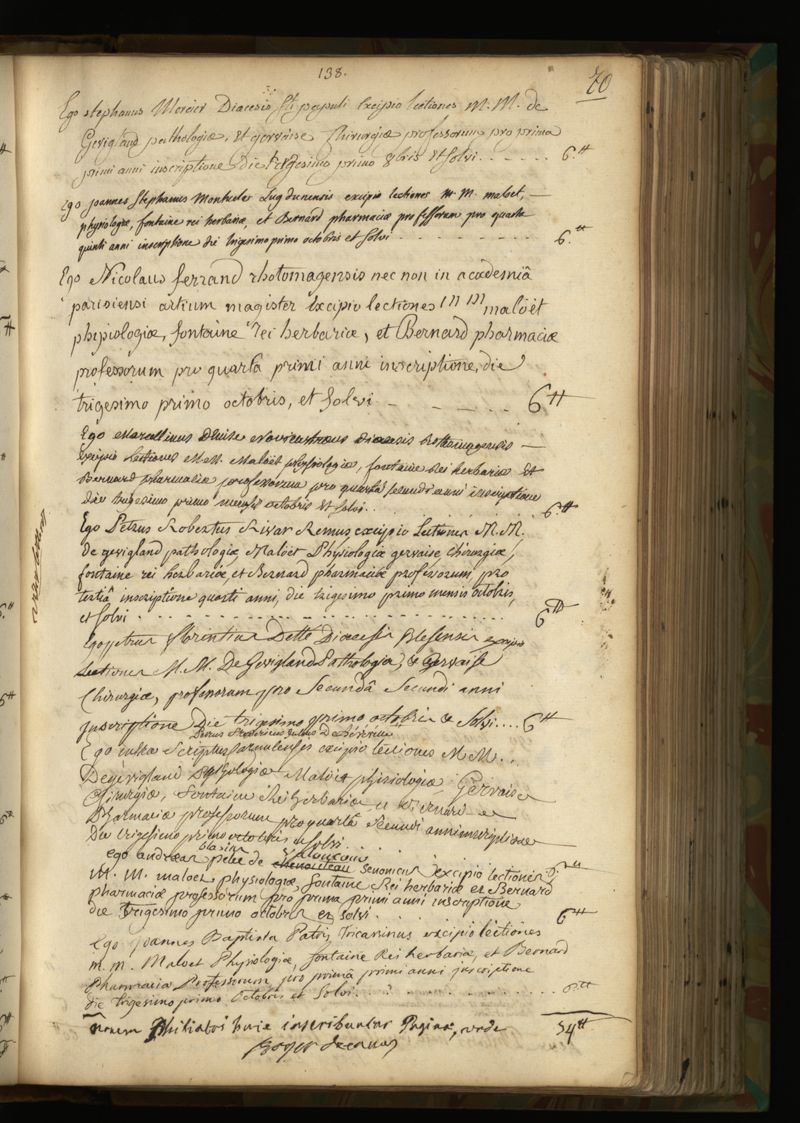 138.
70
Ego stephanus Mercier Diacesis Sti pauli Excipio lectiones M. M. de
Gevigland pathologiæ, et gervaise Chirurgiæ professorum pro prima
primi anni inscriptione die trigesimo primo 8bris et solvi . . . . . . . 6.tt
Ego joannes Stephanus Lugdunensis excipio lectiones M. M. maloet, —
physiologiæ, fontaine rei herbariæ, et Bernard pharmaciæ professorum pro quarta
quinti anni inscriptione die trigesimo primo octobris et solvi . . . . . . . 6.tt
Ego Nicolaus ferrand rhotomagensis nec non in academiâ
parisiensi artium magister Excipio lectiones m m maloët
phisiologiæ, fontaine rei herbariæ, et Bernard pharmaciæ
professorum pro quartâ primi anni inscriptione, die
trigesimo primo octobris, et solvi — — — — — 6tt
Ego Marcellinus diœcesis Rothomagensis —
Excipio Lectiones M. M. Maloët physiologiæ, fontaine Rei herbariæ et
Bernard pharmaciæ professorum pro quartâ secundi anni inscriptione
die trigesimo primo mensis octobris et solvi . . . . . . 6.tt
Ego Petrus Robertus Rivar Remus excipio Lectiones M. M.
De gevigland pathologiæ Maloët Physiologiæ gervaise Chirurgiæ,
fontaine rei herbariæ, et Bernard pharmaciæ professorum pro
tertiâ inscriptione quarti anni, die trigesimo primo mensis octobris,
et solvi . . . . . . . . . . . . 6tt
Ego petrus florentius Dette Diœcesis Blesensis excipio
Lectiones M. M. De Gevigland Pathologiæ, & Gervaise
Chirurgiæ, professorum pro Secundâ Secundi anni
Inscriptione Die trigesimo primo octobris & Solvi . . . . 6tt
Petrus
Ego infra Scriptus excipio lectiones M. M. . .
De gévigland Pathologiæ Maloët phisiologiæ Gervaise
Chirurgiæ, fontaine Rei herbariæ et Bernard
Pharmaciæ professorum pro quartâ secundi anni inscriptione
Die trigesimo primo octobris et solvi . . . .
blasius
ego andreas pelée de chenouteau senonicus excipio lectiones 6tt
M. M. maloet physiologiæ, fontaine Rei herbariæ et Bernard
pharmaciæ professorum pro prima primi anni inscriptione
die trigesimo primo octobris et solvi . . . . . . 6tt
Ego Joannes Baptista Patris Tricassinus excipio lectiones
m. m. Maloet Physiologiæ, fontaine Rei herbariæ, et Bernard
Pharmaciæ Professorum pro primâ primi anni inscriptione
die trigesimo primo Octobris et Solvi . . . . . . 6tt
novem Philiatri huic inscribuntur Paginæ, unde 54tt
Boyer decanus